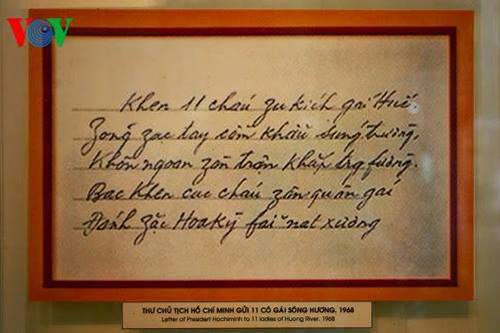 VOV
Khen 11 cháu zu kích gái Huế,
Zõng zạc tay cầm khẩu súng trường,
Khôn ngoan zàn trận khắp trg fường.
Bác Khen các cháu zân quân gái
Đánh zặc Hoa Kỳ fải nát xương
THƯ CHỦ TỊCH HỒ CHÍ MINH GỬI 11 CÔ GÁI SÔNG HƯƠNG, 1968
Letter of President Hochiminh to 11 ladies of Huong River. 1968